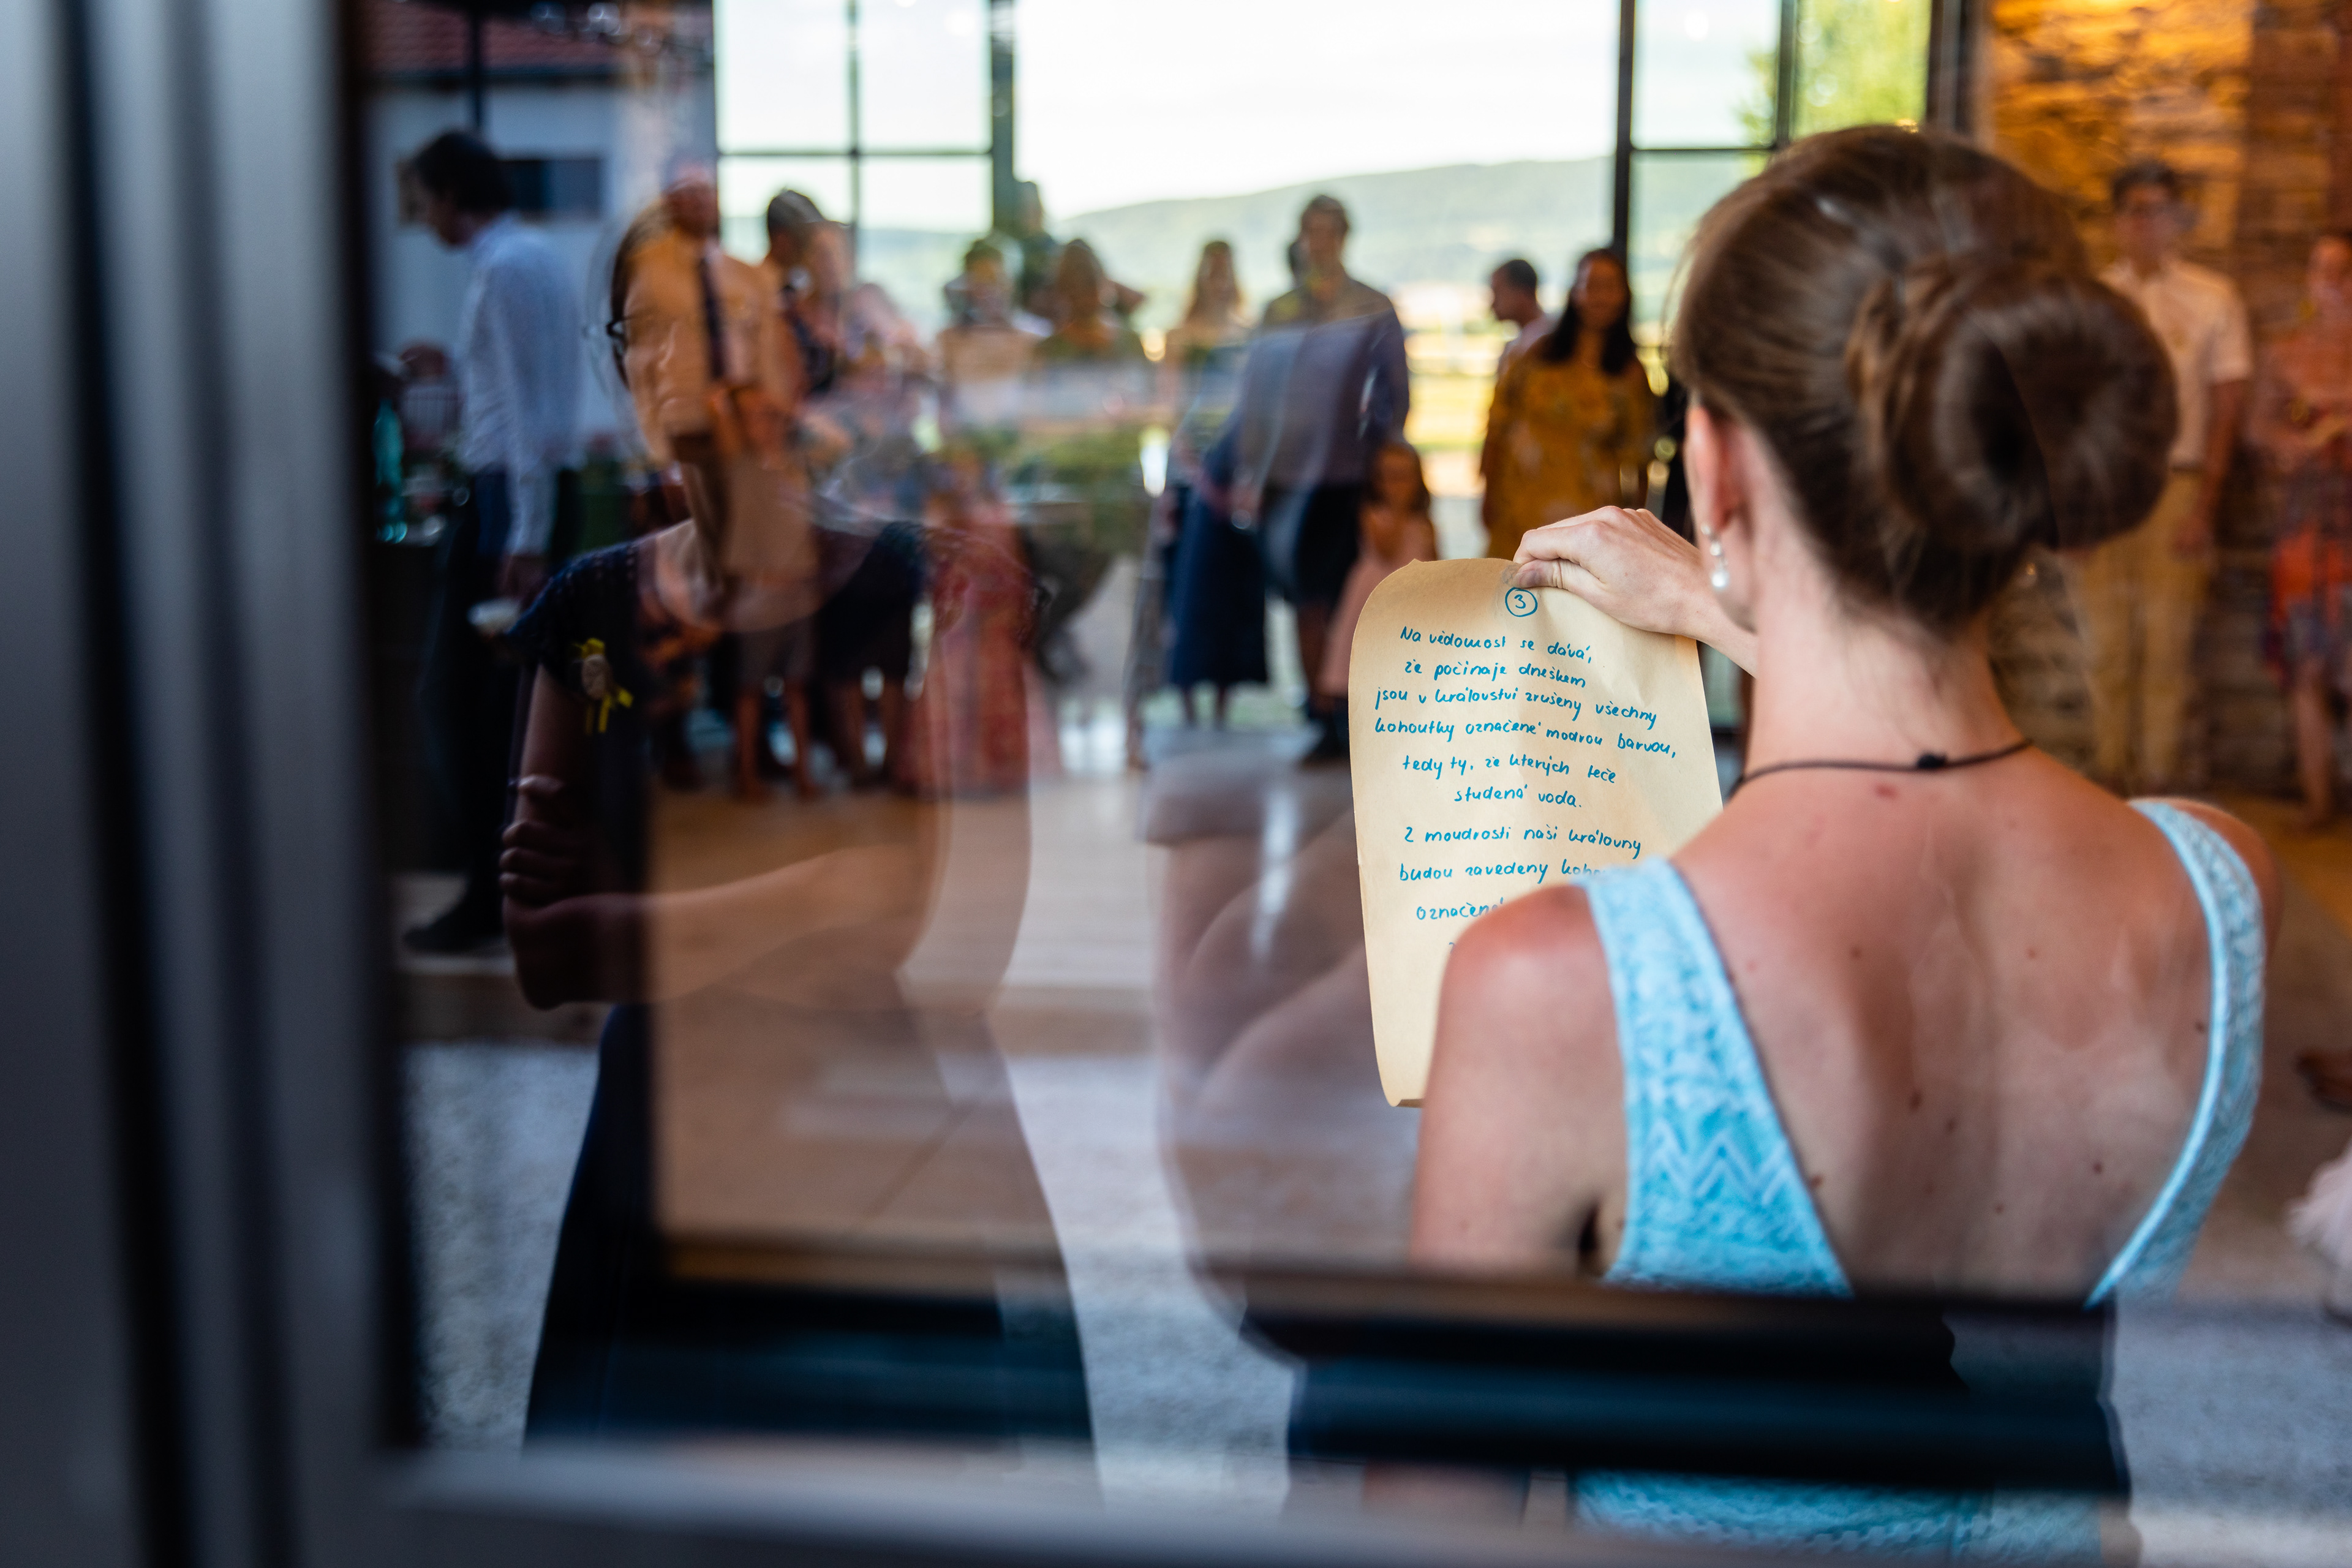 3
Na vědomost se dává,
že počínaje dneškem
jsou v království zrušeny všechny
kohoutky označené modrou barvou,
tedy ty, ze kterých teče
studená voda.
Z moudrosti naší královny
budou zavedeny
označené